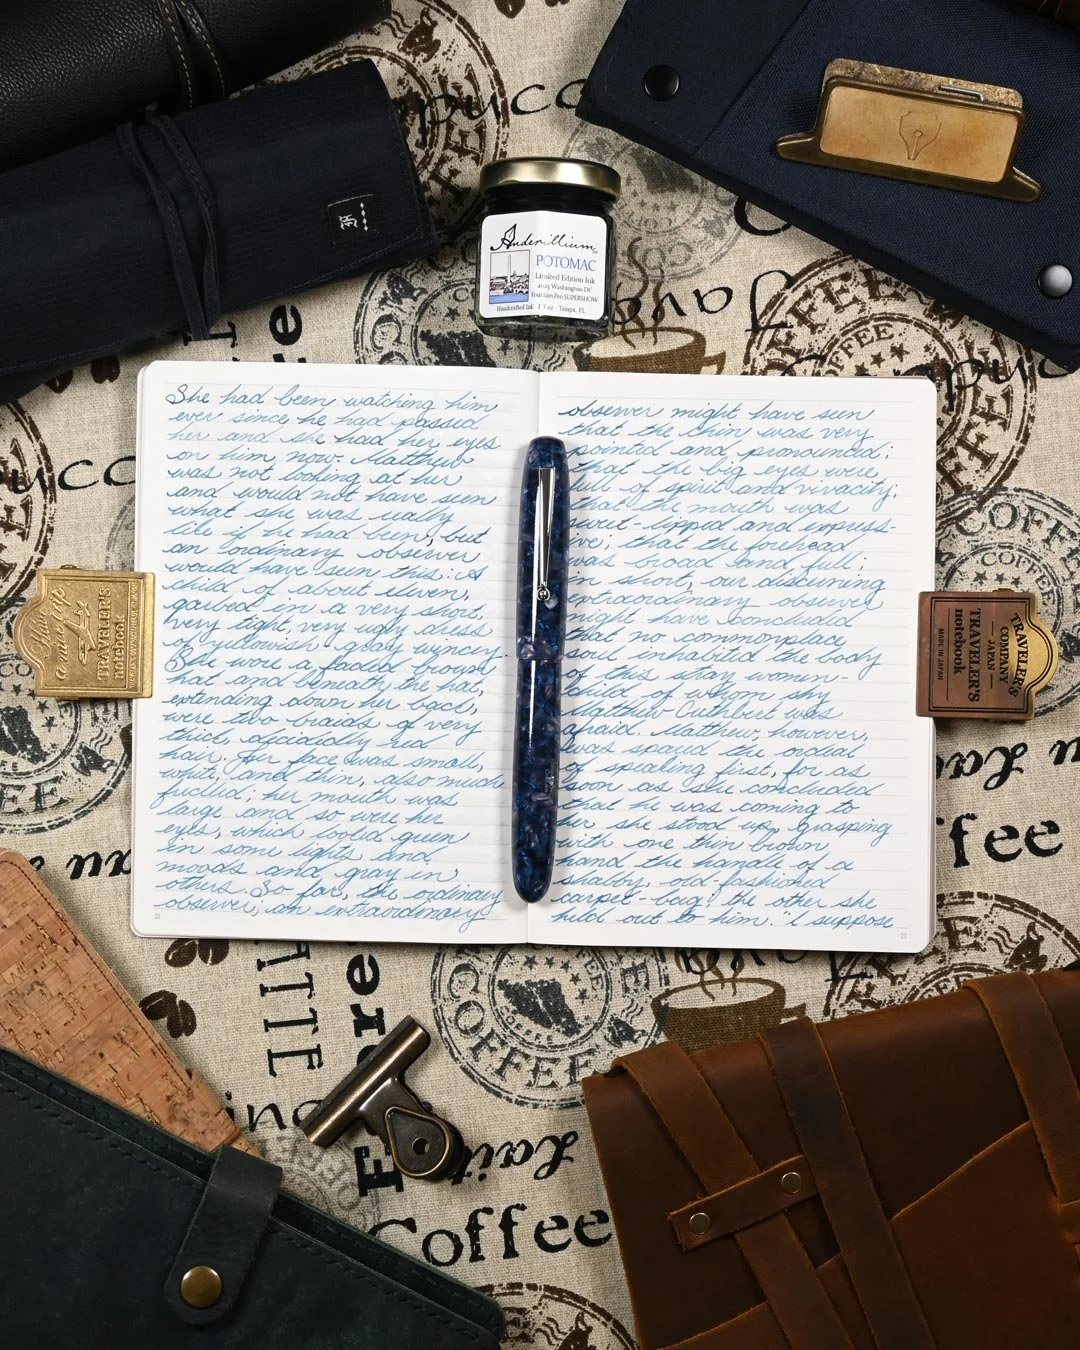 Anderillium
POTOMAC
Limited Edition Ink
2023 Washington DC
Fountain Pen SUPERSHOW
Handcrafted Ink 1.5 oz Tampa, FL
She had been watching him
ever since he had passed
her and she had her eyes
on him now. Matthew
was not looking at her
and would not have seen
what she was really
like if he had been, but
an ordinary observer
would have seen this: A
child of about eleven,
garbed in a very short,
very tight, very ugly dress
of yellowish-gray wincey.
She wore a faded brown
hat and beneath the hat,
extending down her back,
were two braids of very
thick, decidedly red
hair. Her face was small,
white, and thin, also much
freckled; her mouth was
large and so were her
eyes, which looked green
in some lights and
moods and gray in
others. So far, the ordinary
observer; an extraordinary
22
observer might have seen
that the chin was very
pointed and pronounced;
that the big eyes were
full of spirit and vivacity;
that the mouth was
sweet-lipped and express-
ive; that the forehead
was broad and full;
in short, our discerning
extraordinary observer
might have concluded
that no commonplace
soul inhabited the body
of this stray women-
child of whom shy
Matthew Cuthbert was
afraid. Matthew, however,
was spared the ordeal
of speaking first, for as
soon as she concluded
that he was coming to
her she stood up, grasping
with one thin brown
hand the handle of a
shabby, old-fashioned
carpet-bag; the other she
held out to him. "I suppose
23
Have
a nice trip
TRAVELER'S
notebook
TRAVELER'S
COMPANY
JAPAN
TRAVELER'S
notebook
MADE IN JAPAN
COFFEE
COFFEE
COFFEE
COFFEE
Java
ffee
Coffee
COFFEE
COFFEE